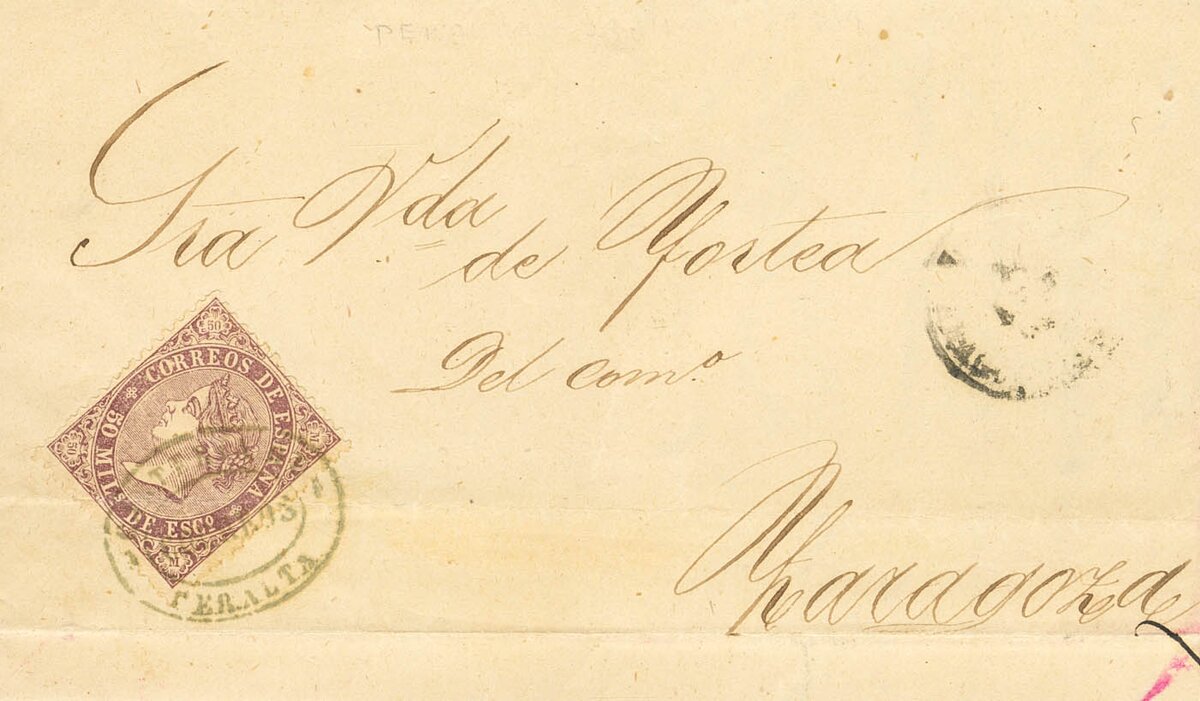 Sra Vda
de Fortea
Del comº
Zaragoza
CORREOS DE ESPAÑA
50 MIL.s DE ESCº
50
50
M
M
PERALTA